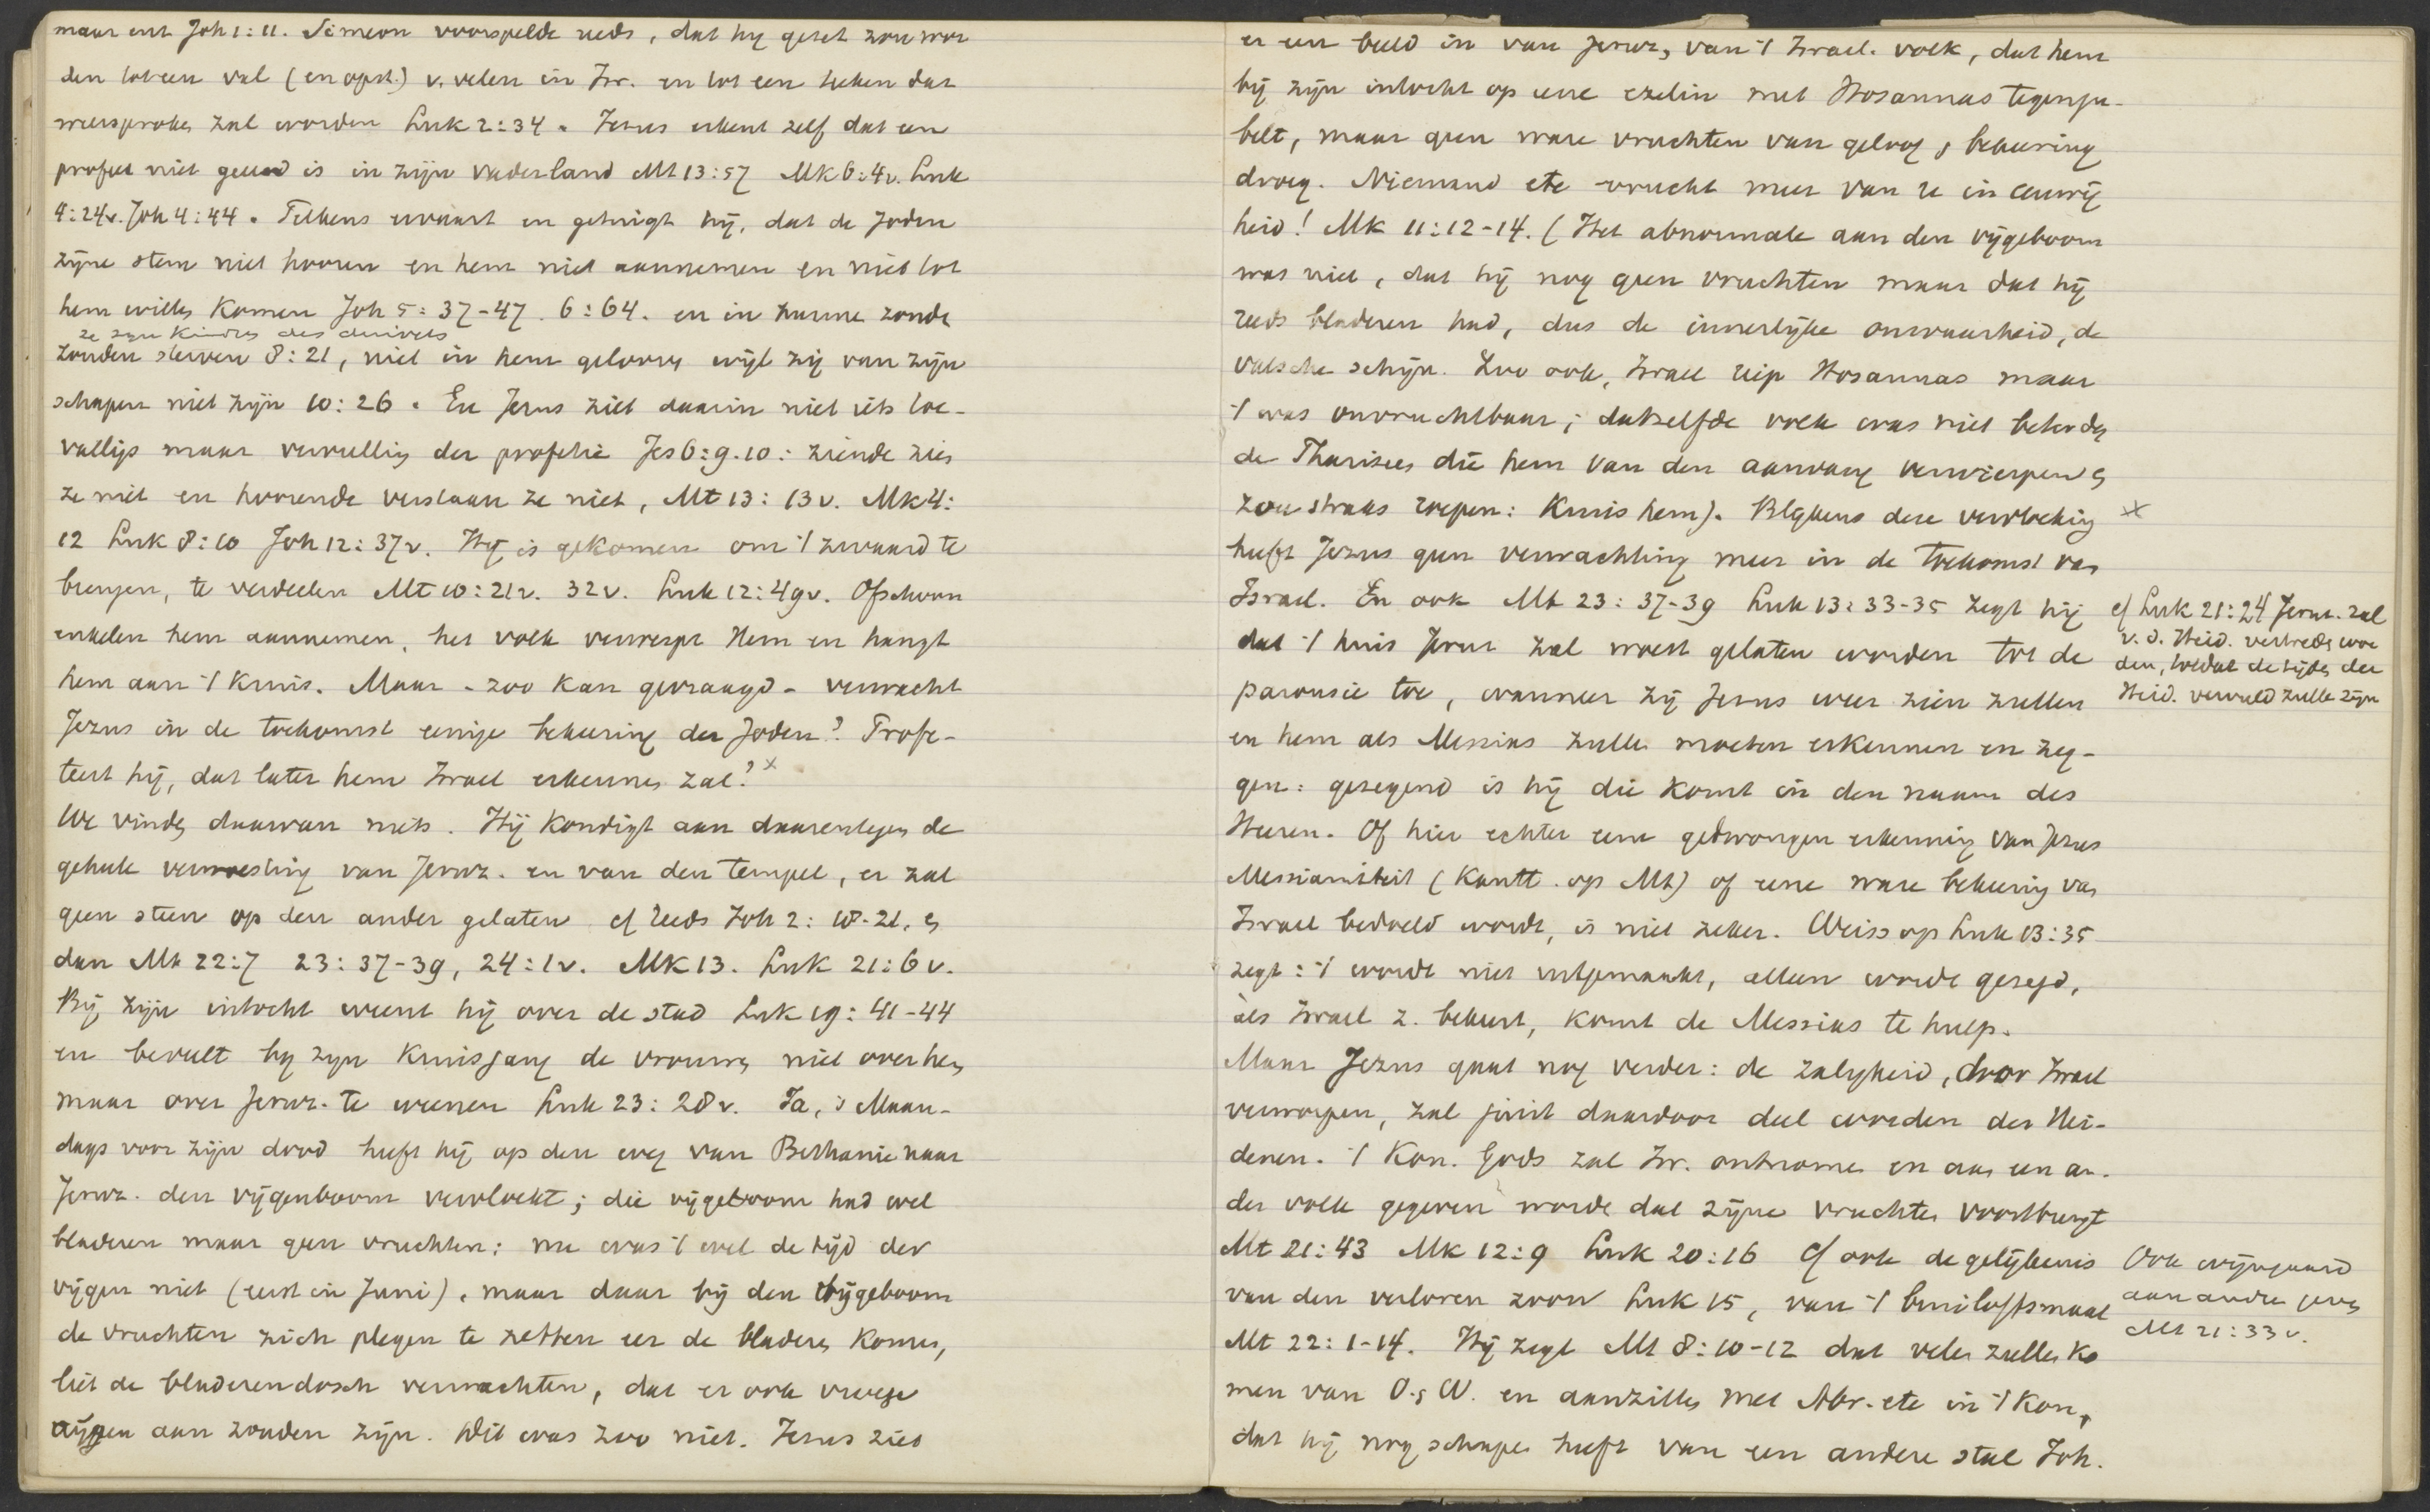 maar cest Joh 1:11. Simeon voorspelde reeds, dat hy gezet zou wor
den tot een val (en opst.) v. velen in Isr. en tot een teeken dat
weersproken zal worden Luk 2:34. Jezus erkent zelf dat een
profeet niet geeerd is in zijn vaderland Mt 13:57 Mk 6:4v. Luk
4:24v. Joh 4:44. Telkens ervaart en getuigt hij, dat de Joden
zijne stem niet hooren en hem niet aannemen en niet tot
hem willen komen Joh 5:37-47. 6:64. en in hunne zonde
ze zyn kindren des duivels
zouden sterven 8:21, niet in hem gelooven wijl zij van zijn
schapen niet zijn 10:26. En Jezus ziet daarin niet iets toe-
valligs maar vervulling der profetie Jes 6:9.10: ziende zien
ze niet en hoorende verstaan ze niet, Mt 13:13v. Mk 4:
12 Luk 8:10 Joh 12:37v. Hij is gekomen om 't zwaard te
brengen, te verdeelen Mt 10:21v. 32v. Luk 12:49v. Ofschoon
enkelen hem aannemen, het volk verwerpt Hem en hangt
hem aan 't kruis. Maar - zoo kan gevraagd - verwacht
Jezus in de toekomst eenige bekeering der Joden? Profe-
teert hij, dat later hem Israel erkennen zal? x
We vinden daarvan niets. Hij kondigt aan daarentegen de
geheele verwoesting van Jeruz. en van den tempel, er zal
geen steen op den ander gelaten cf reeds Joh 2:18-21, en
dan Mt 22:7 23:37-39, 24:1v. Mk 13. Luk 21:6v.
Bij zijn intocht weent hij over de stad Luk 19:41-44
en beveelt by zyn kruisgang de vrouwen niet over hem
maar over Jeruz. te weenen Luk 23:28v. Ja, 's Maan-
dags voor zijn dood heeft hij op den weg van Bethanie naar
Jeruz. den vijgenboom vervloekt; die vijgeboom had wel
bladeren maar geen vruchten; nu was 't wel de tijd der
vijgen niet (eerst in Juni), maar daar bij den vijgeboom
de vruchten zich plegen te zetten eer de bladeren komen,
liet de bladerendosch verwachten, dat er ook vroege
vijgen aan zouden zijn. Dit was zoo niet. Jezus ziet
er een beeld in van Jeruz, van 't Israel. volk, dat hem
bij zijn intocht op eene ezelin met Hosannas tegenju-
belt, maar geen ware vruchten van geloof en bekeering
droeg. Niemand ete vrucht meer van u in eeuwig
heid! Mk 11:12-14. (Het abnormale aan den vijgeboom
was niet, dat hij nog geen vruchten maar dat hij
reeds bladeren had, dus de innerlijke onwaarheid, de
valsche schijn. Zoo ook, Israel riep Hosannas maar
't was onvruchtbaar; datzelfde volk was niet beter dan
de Pharizees die hem van den aanvang verwierpen en
zou straks roepen: Kruis hem). Blijkens deze vervloeking x
heeft Jezus geen verwachting meer in de toekomst van
Israel. En ook Mt 23:37-39 Luk 13:33-35 zegt hij
dat 't huis Jeruz zal woest gelaten worden tot de
parousie toe, wanneer zij Jezus weer zien zullen
cf Luk 21:24 Jeruz. zal
v. d. Heid. vertreden wor
den, totdat de tijden der
Heid. vervuld zullen zijn
en hem als Messias zullen moeten erkennen en zeg-
gen: gezegend is hij die komt in den naam des
Heeren. Of hier echter eene gedwongen erkenning van Jezus
Messianiteit (Kantt. op Mt) of eene ware bekeering van
Israel bedoeld wordt, is niet zeker. Weiss op Luk 13:35
zegt: 't wordt niet uitgemaakt, alleen wordt gezegd,
als Israel z. bekeert, komt de Messias te hulp.
Maar Jezus gaat nog verder: de zaligheid, door Israel
verworpen, zal juist daardoor deel worden der Hei-
denen. 't Kon. Gods zal Isr. ontnomen en aan een an-
der volk gegeven worden dat zijne vruchten voortbrengt
Mt 21:43 Mk 12:9 Luk 20:16 Cf ook de gelijkenis
van den verloren zoon Luk 15, van 't bruiloftsmaal
Ook wijngaard
aan andren geven
Mt 21:33v.
Mt 22:1-14. Hij zegt Mt 8:10-12 dat velen zullen ko
men van O. en W. en aanzitten met Abr. etc in 't Kon,
dat hij nog schapen heeft van een andere stal Joh.